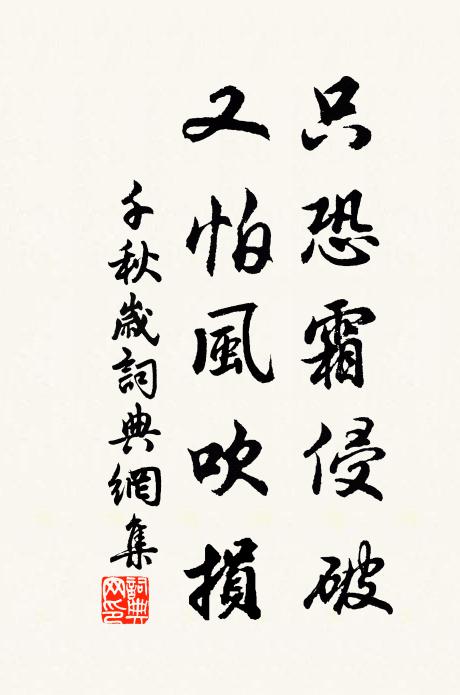 只恐霜侵破
又怕風吹損
千秋歲詞典網集
詞典網印